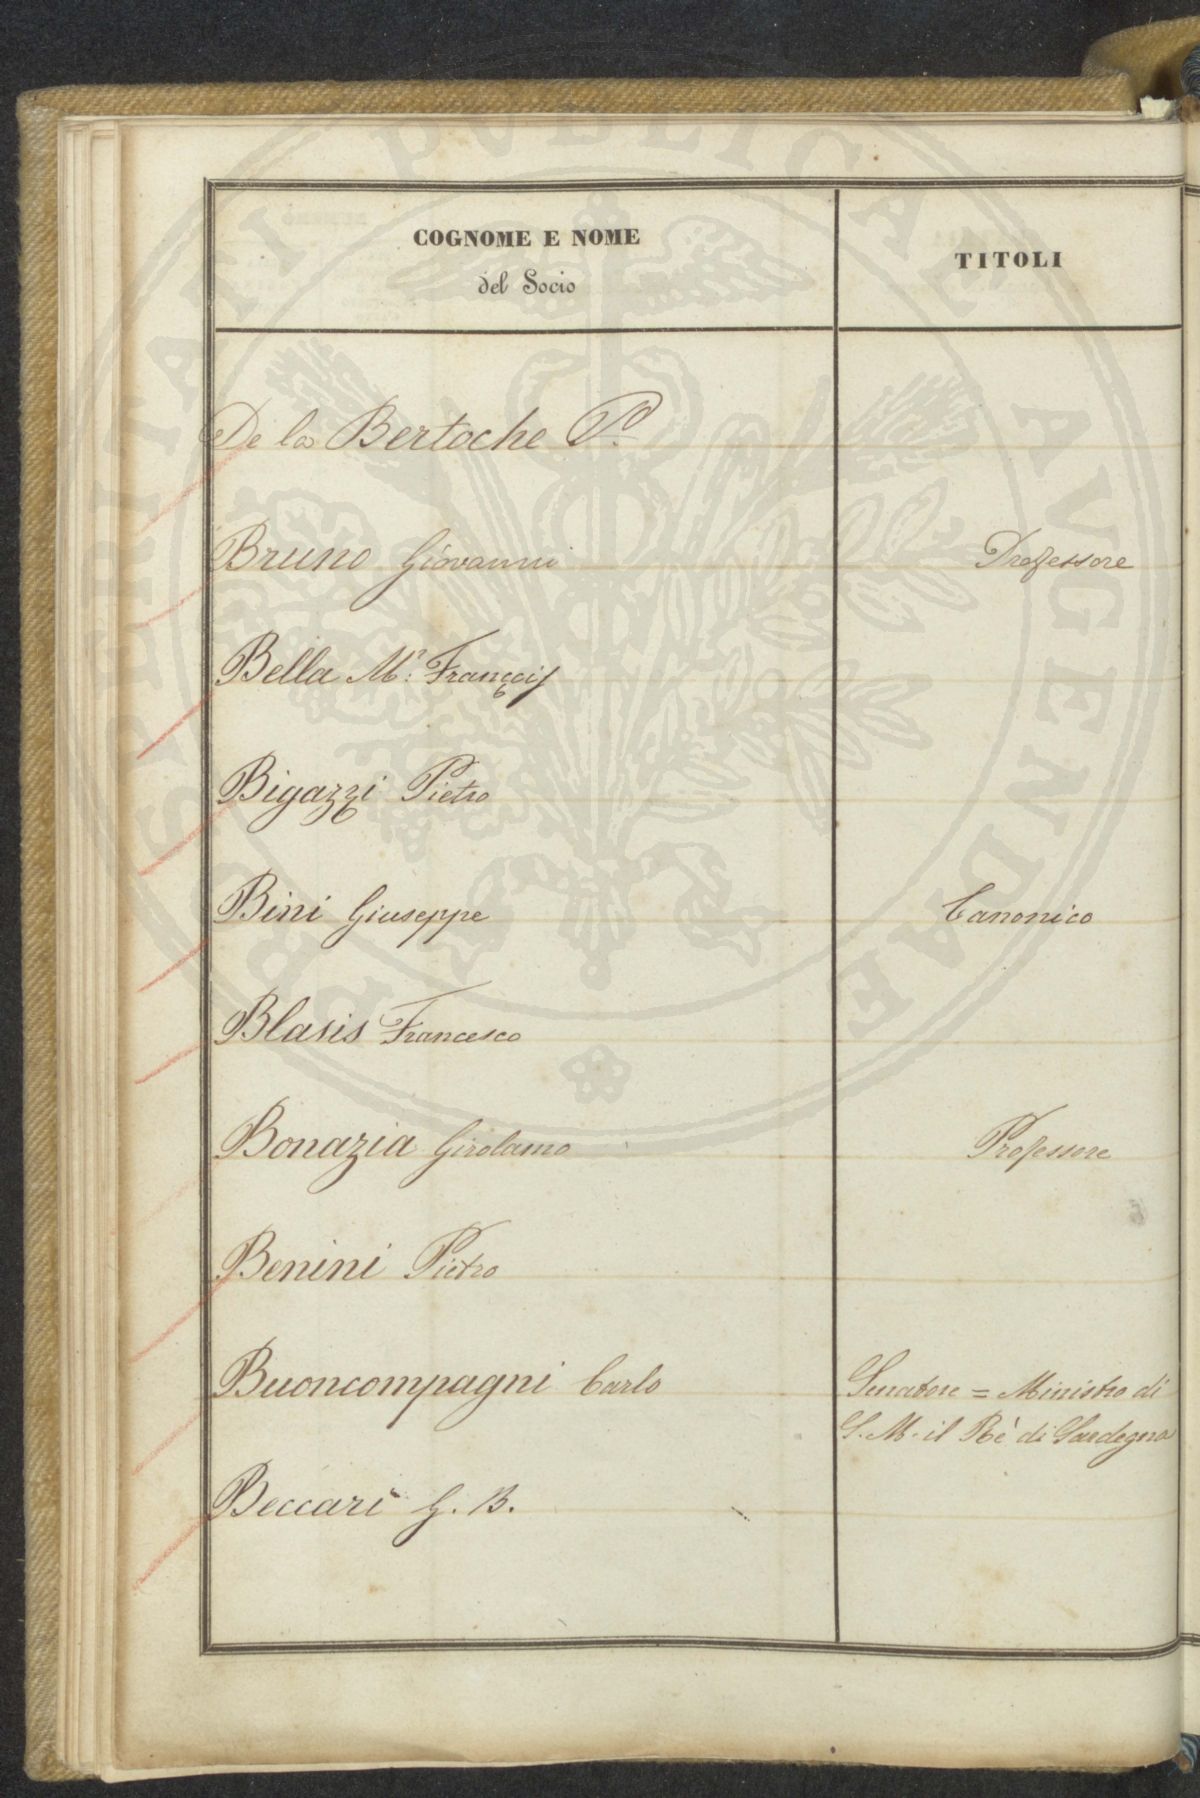 COGNOME E NOME
del Socio
TITOLI
De la Bertoche P.
Bruno Giovanni Professore
Bella Mr. François
Bigazzi Pietro
Bini Giuseppe Canonico
Blasis Francesco
Bonazia Girolamo Professore
Benini Pietro
Buoncompagni Carlo Senatore = Ministro di
S. M. il Rè di Sardegna
Beccari G. B.
PROSPERITATI PVBLICAE AVGENDAE